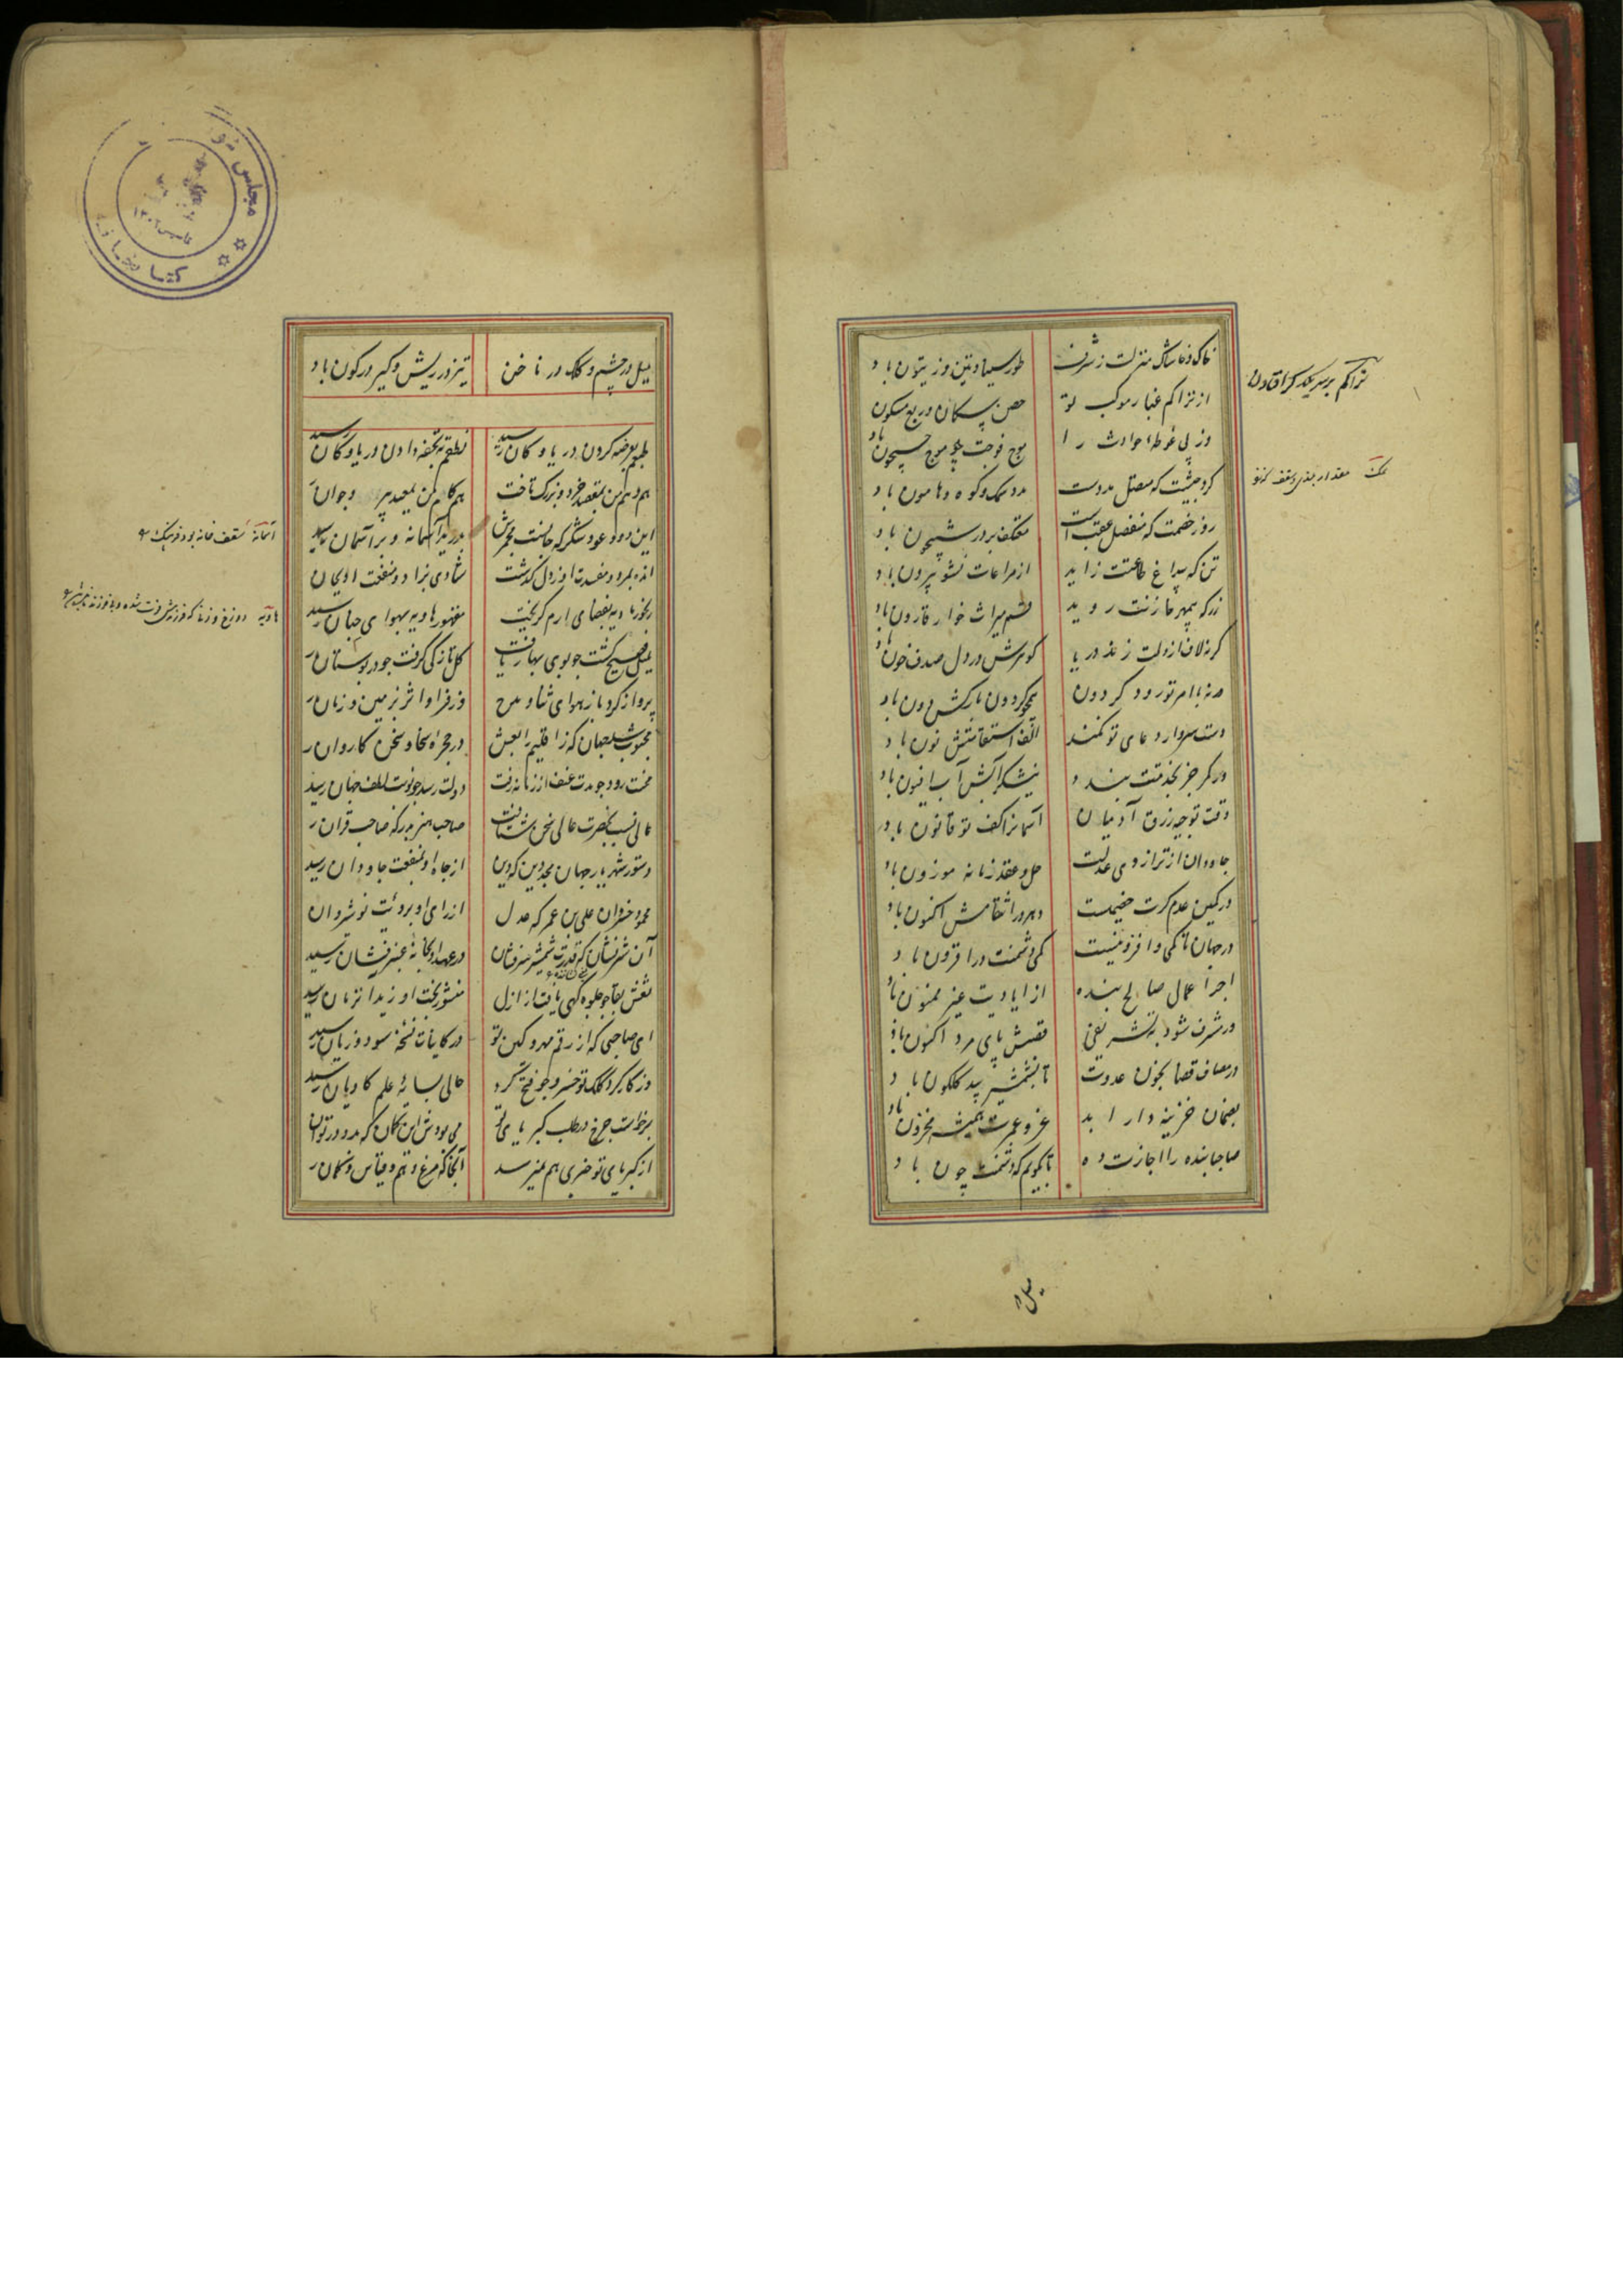 خاک و خاشاک منزلت ز شرف
طور سینا و تین و زیتون باد
از تراکم غبار موکب تو
حصن پیکان و ربع مسکون
وز پی غوطه حوادث را
موج فوجت چو موج جیحون باد
گرد جیشت که متصل مددست
مدد سمک و کوه و هامون باد
روز خصمت که منفصل عقب است
معتکف بر در شبیخون باد
تن که بیداغ طاعتت زاید
از مراعات نشو بیرون باد
زر که بیمهر خازنت روید
قسم میراث خوار قارون باد
گر نه لاف از دلت زند دریا
گوهرش در دل صدف خون باد
ور نه با امر تو رود گردون
همچو گردون بارکش دون باد
دست سرو ار دعای تو نکند
الف استقامتش نون باد
ور کمر جز بخدمتت بندد
نیشکر آبش آب افیون باد
وقت توجیه رزق آدمیان
آسمانرا کف تو قانون باد
جاودان از ترازوی عدلت
حل و عقد زمانه موزون باد
در کمین عدم گرت خصمیست
دهر در انتقامش اکنون باد
در جهان تا کمی و افزونیست
کمی دشمنت در افزون باد
اجر اعمال صالح بنده
از ایادیت غیر ممنون باد
ور مشرف شود بتشریفی
قفیش پای مرد اکنون باد
در مصاف قضا بخون عدوت
تا بشمشیر بید گلگون باد
بضمان خزینه دار ابد
عز و عمرت همیشه مخزون باد
صاحبا بنده را اجازت ده
تا بگویم که دشمنت چون باد
تراکم بر سر یکدیگر افتادن
سمک مقدار بلندی سقف
میل در
میل در چشم و کلک در ناخن
تیز در ریش و کیر در کون باد
طبعم بعرضه کردن دریا و کان رسید
نطقم بتحفه دادن دریا و کان رسید
هم وهم من بمقصد خرد و بزرگ تاخت
هم گام من بمعبد پیر و جوان
این دود عود شکر که جانست مجمرش
بدرید آسمانه و بر آسمان رسید
انده بمرد و مفسدت او ز دل گذشت
شادی بزاد و منفعت او بجان
رنجور بادیه بفضای ارم گریخت
مقهور هاویه بهوای جنان رسید
بلبل فصیح گشت چو بوی بهار یافت
گل تازگی گرفت چو در بوستان
پرواز کرد باز هوای ثنا و مدح
وز فر او اثر بزمین و زمان
محبوب شد جهان که ز اقلیم رابعش
در حجره سخا و سخن کاروان
محنت رود چو مدت عنف از زمانه رفت
دولت رسد چو نوبت لطف جهان رسید
عالی نسب بحضرت عالی سخن شتافت
صاحب هنر بدرگه صاحب قران
دستور شهریار جهان مجد دین که دین
از جاه او بمنفعت جاودان رسید
محمود خسروان علی بن عمر که عدل
از رای او برؤیت نوشیروان
آن شرنشان که قدرت شمشیر سرفشان
در عهد او بخانه عنبر فشان رسید
نقش بقا چو جلوه گهی یافت از ازل
منشور بخت او ز ابد تر زبان رسید
ای صاحبی که از رقم مهر و کین تو
در کاینات نسخه سود و زیان رسید
وز کارکرد کلک تو خسرو چو فتح کرد
حالی بسایه علم کاویان رسید
برخاست چرخ در طلب کبریای تو
می بودش این گمان که بدو در توان
از کبریای تو خبری هم نمیرسد
آنجا که مرغ وهم و قیاس و گمان
آسمانه سقف خانه بود
هاویه دوزخ
مجلس شو
کتابخانه